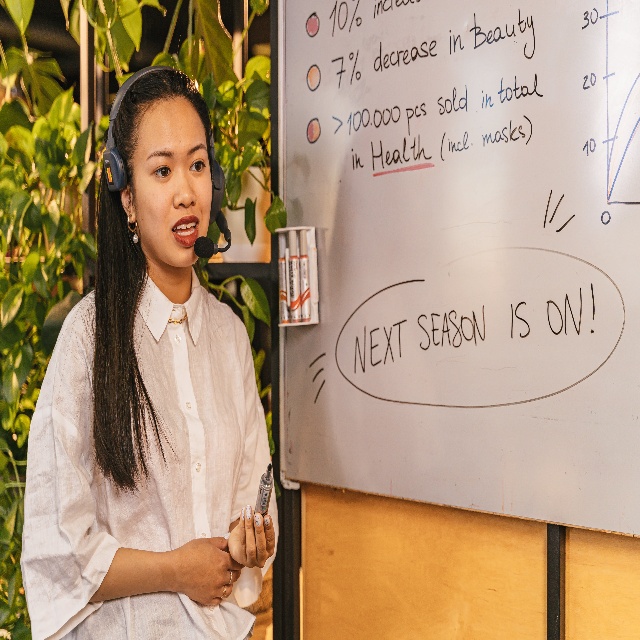 10% increase
7% decrease in Beauty
>100.000 pcs sold in total
in Health (incl. masks)
30
20
10
0
NEXT SEASON IS ON!